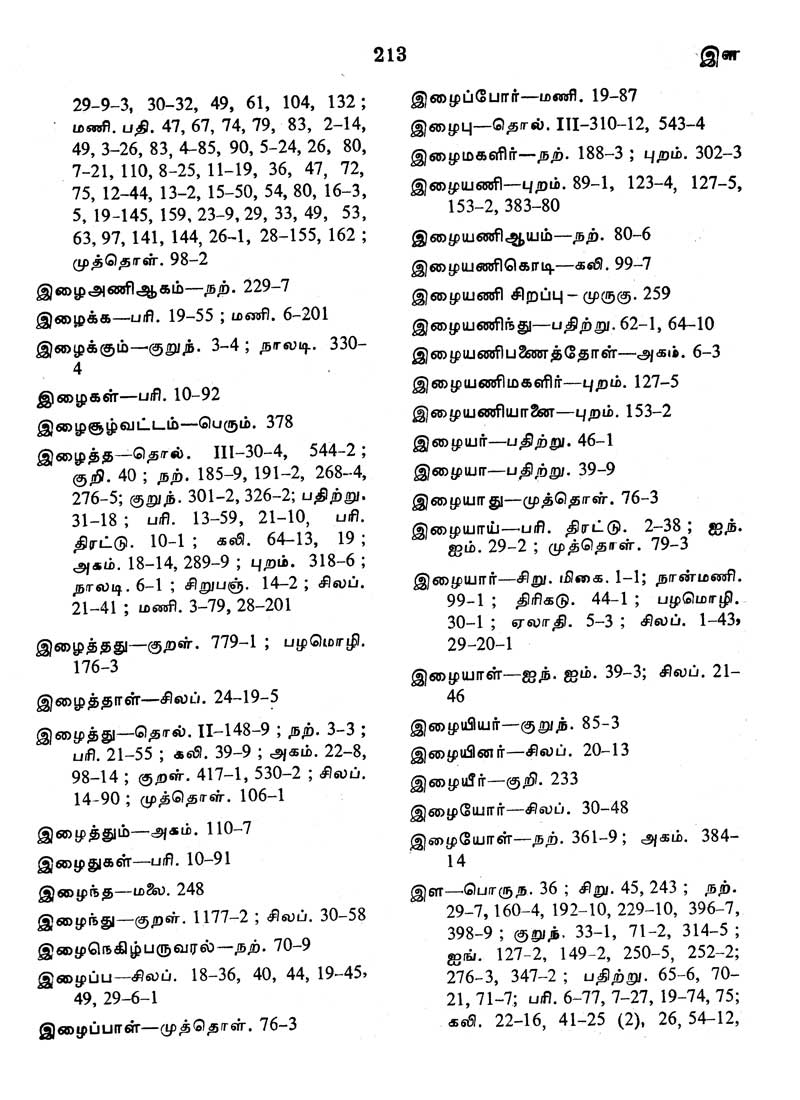 213
இள
29–9–3, 30–32, 49, 61, 104, 132 ;
மணி. பதி. 47, 67, 74, 79, 83, 2–14,
49, 3–26, 83, 4–85, 90, 5–24, 26, 80,
7–21, 110, 8–25, 11–19, 36, 47, 72,
75, 12–44, 13–2, 15–50, 54, 80, 16–3,
5, 19–145, 159, 23–9, 29, 33, 49, 53,
63, 97, 141, 144, 26–1, 28–155, 162 ;
முத்தொள். 98–2
இழைஅணிஆகம்—நற். 229–7
இழைக்க—பரி. 19–55 ; மணி. 6–201
இழைக்கும்—குறுந். 3–4 ; நாலடி. 330–
4
இழைகள்—பரி. 10–92
இழைசூழ்வட்டம்—பெரும். 378
இழைத்த—தொல். III–30–4, 544–2 ;
குறி. 40 ; நற். 185–9, 191–2, 268–4,
276–5; குறுந். 301–2, 326–2; பதிற்று.
31–18 ; பரி. 13–59, 21–10, பரி.
திரட்டு. 10–1 ; கலி. 64–13, 19 ;
அகம். 18–14, 289–9 ; புறம். 318–6 ;
நாலடி. 6–1 ; சிறுபஞ். 14–2 ; சிலப்.
21–41 ; மணி. 3–79, 28–201
இழைத்தது—குறள். 779–1 ; பழமொழி.
176–3
இழைத்தாள்—சிலப். 24–19–5
இழைத்து—தொல். II–148–9 ; நற். 3–3 ;
பரி. 21–55 ; கலி. 39–9 ; அகம். 22–8,
98–14 ; குறள். 417–1, 530–2 ; சிலப்.
14–90 ; முத்தொள். 106–1
இழைத்தும்—அகம். 110–7
இழைதுகள்—பரி. 10–91
இழைந்த—மலை. 248
இழைந்து—குறள். 1177–2 ; சிலப். 30–58
இழைநெகிழ்பருவரல்—நற். 70–9
இழைப்ப—சிலப். 18–36, 40, 44, 19–45,
49, 29–6–1
இழைப்பாள்—முத்தொள். 76–3
இழைப்போர்—மணி. 19–87
இழைபு—தொல். III–310–12, 543–4
இழைமகளிர்—நற். 188–3 ; புறம். 302–3
இழையணி—புறம். 89–1, 123–4, 127–5,
153–2, 383–80
இழையணிஆயம்—நற். 80–6
இழையணிகொடி—கலி. 99–7
இழையணி சிறப்பு – முருகு. 259
இழையணிந்து—பதிற்று. 62–1, 64–10
இழையணிபணைத்தோள்—அகம். 6–3
இழையணிமகளிர்—புறம். 127–5
இழையணியானை—புறம். 153–2
இழையர்—பதிற்று. 46–1
இழையா—பதிற்று. 39–9
இழையாது—முத்தொள். 76–3
இழையாய்—பரி. திரட்டு. 2–38 ; ஐந்.
ஐம். 29–2 ; முத்தொள். 79–3
இழையார்—சிறு. மிகை. 1–1; நான்மணி.
99–1 ; திரிகடு. 44–1 ; பழமொழி.
30–1 ; ஏலாதி. 5–3 ; சிலப். 1–43,
29–20–1
இழையாள்—ஐந். ஐம். 39–3; சிலப். 21–
46
இழையியர்—குறுந். 85–3
இழையினர்—சிலப். 20–13
இழையீர்—குறி. 233
இழையோர்—சிலப். 30–48
இழையோள்—நற். 361–9 ; அகம். 384–
14
இள—பொருந. 36 ; சிறு. 45, 243 ; நற்.
29–7, 160–4, 192–10, 229–10, 396–7,
398–9 ; குறுந். 33–1, 71–2, 314–5 ;
ஐங். 127–2, 149–2, 250–5, 252–2;
276–3, 347–2 ; பதிற்று. 65–6, 70–
21, 71–7; பரி. 6–77, 7–27, 19–74, 75;
கலி. 22–16, 41–25 (2), 26, 54–12,